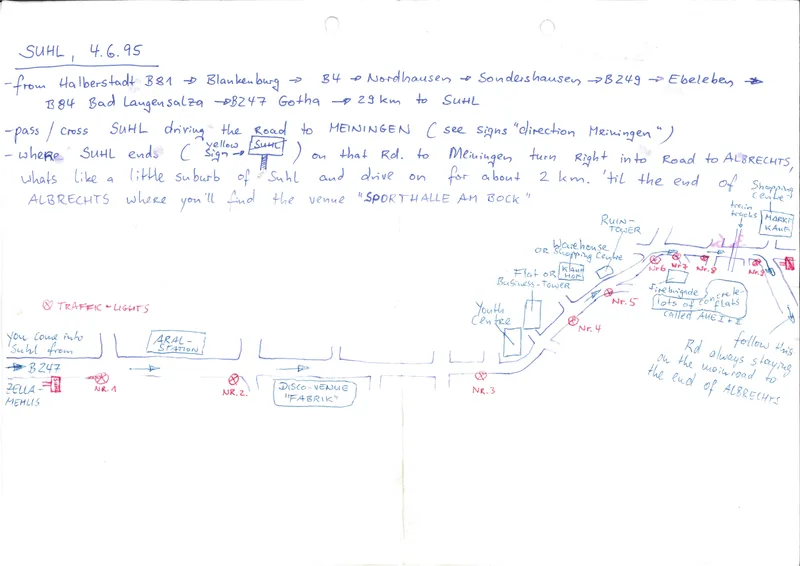 SUHL, 4.6.95
- from Halberstadt B81 → Blankenburg → B4 → Nordhausen → Sondershausen → B249 → Ebeleben →
B84 Bad Langensalza → B247 Gotha → 29 km to SUHL
- pass / cross SUHL driving the Road to MEININGEN ( see signs "direction Meiningen" )
- where SUHL ends ( yellow sign → SUHL ) on that Rd. to Meiningen turn Right into Road to ALBRECHTS,
whats like a little suburb of Suhl and drive on for about 2 km. 'til the end of
ALBRECHTS where you'll find the venue "SPORTHALLE AM BOCK"
Shopping
Centre
train
tracks
MARKT
KAUF
RUIN-
TOWER
Warehouse
OR Shopping Centre
KAUF
HOF
Flat OR
Business-Tower
Youth
Centre
NR.6
NR.7
NR.8
NR.9
NR.5
NR.4
firebrigade
lots of concrete-
flats
called AUE I + II
⊗ TRAFFIC-LIGHTS
follow this
Rd always staying
on the mainroad to
the end of ALBRECHTS
You come into
Suhl from
→ B247
ZELLA-
MEHLIS
ARAL-
STATION
NR.1
NR.2.
DISCO-VENUE
"FABRIK"
NR.3